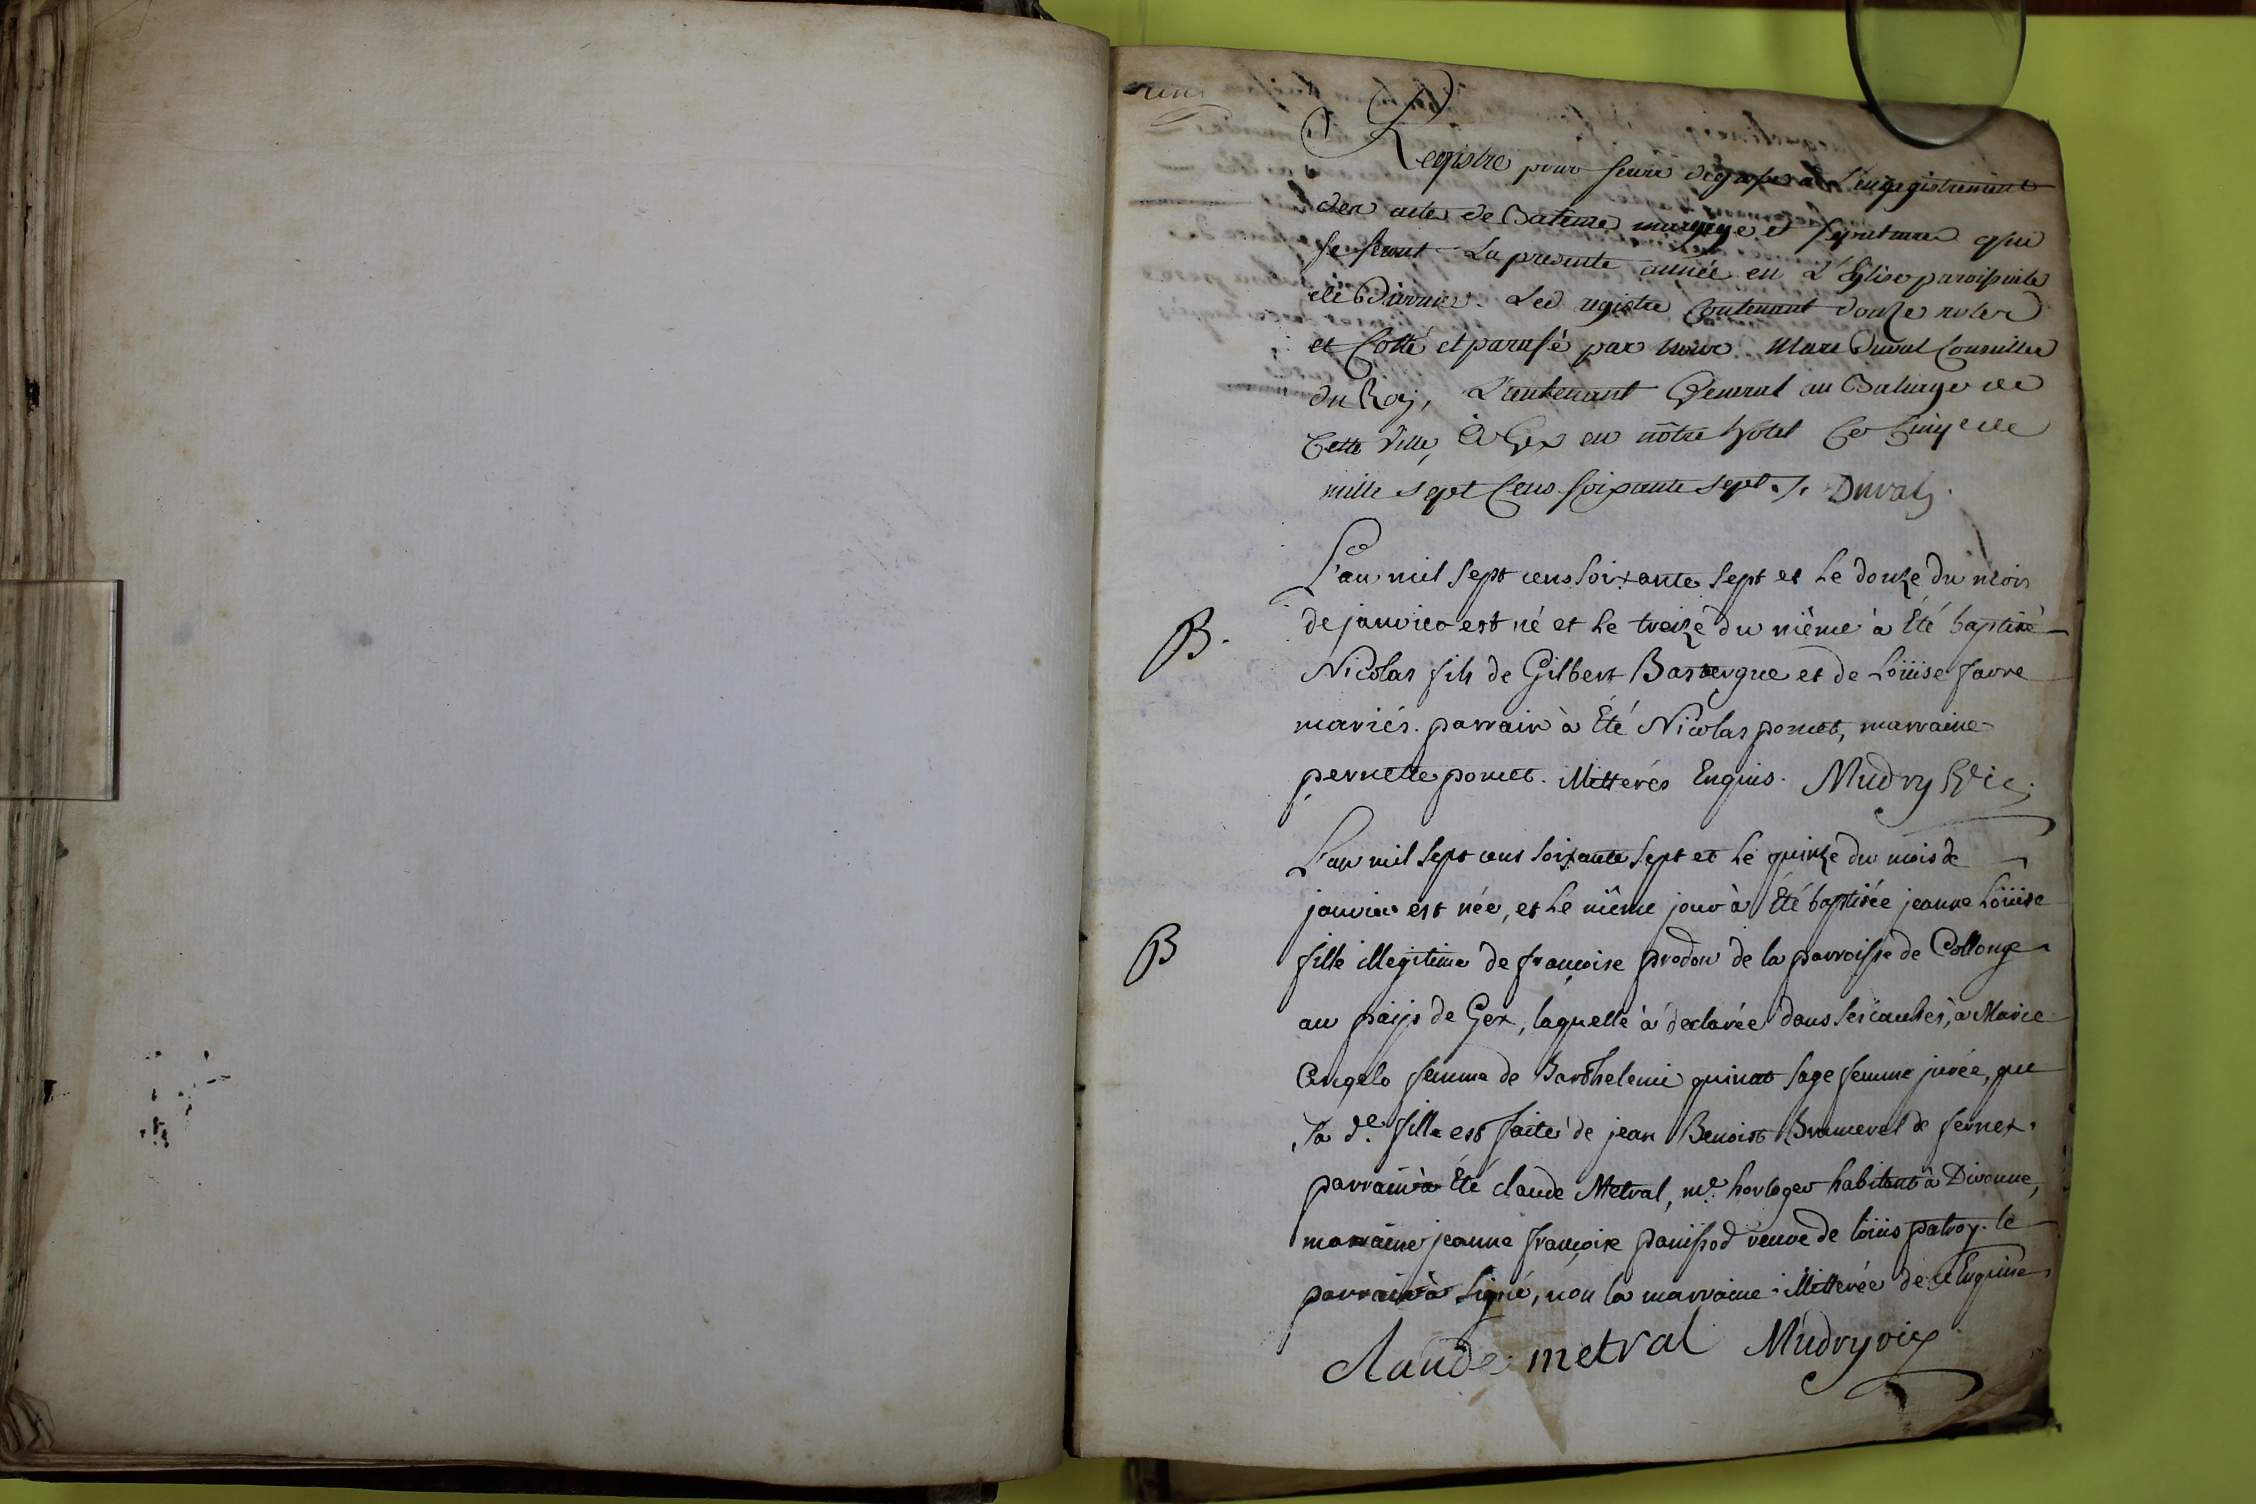 Registre pour servir de grosse a L'enregistrement
des actes de Bateme mariage et sepulture qui
se feront La presente année en L'Eglise paroissiale
de Divonne. Led registre Contenant douze roles
et Cotté et parafé par nous Marc Duval Conseiller
du Roy, Lieutenant General au Baliage de
Cette Ville, A Gex en nôtre hotel Ce
mille sept Cens soixante sept. /. Duval
L'an mil sept cens soixante sept et le douze du mois
de janvier est né et le treize du même à Été baptisé
B.
Nicolas fils de Gilbert Bastergue et de Loüise favre
mariés. parrain à Été Nicolas poncet, marraine
pernette poncet. illitterés Enquis. Mudry Vic
L'an mil sept cens soixante sept et le quinze du mois de
janvier est née, et le même jour à Été baptisée jeanne Loüise
B
fille illegitime de françoise prodon de la parroisse de Collonge
au païs de Gex, laquelle à declarée dans ses couches, à Marie
Angelo femme de Barthelemi quinat sage femme jurée, que
la de. fille est faite de jean Benoist Bramerel de fernex.
parrain à Été claude Metral, me. horloger habitant à Divonne,
marraine jeanne françoise panissod veuve de loüis patroy. le
parrain à signé, non la marraine illitterée de ce Enquise
claude metral Mudry vic